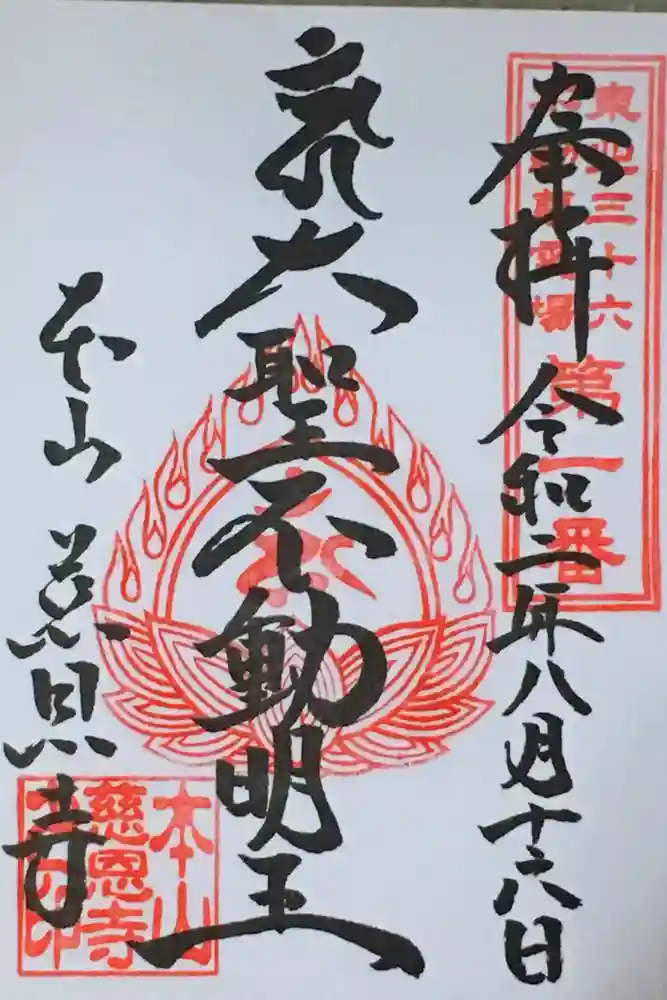 奉拝 令和二年八月十六日
東北三十六
不動尊霊場
第一番
大聖不動明王
本山 慈恩寺
本山
慈恩寺